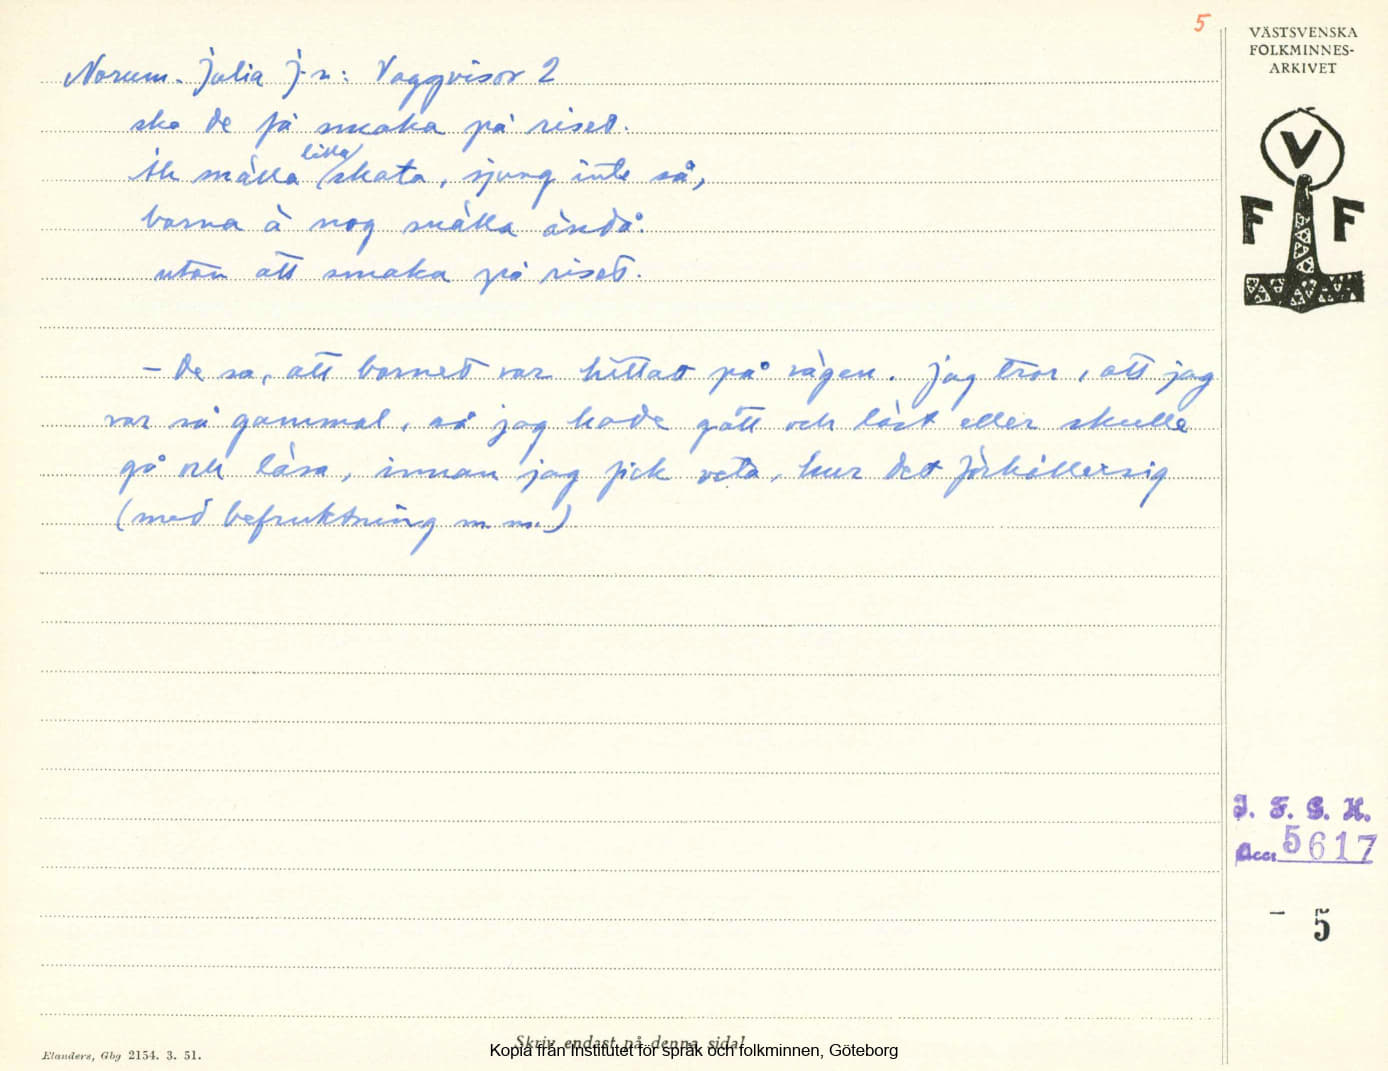 5
VÄSTSVENSKA
FOLKMINNES-
ARKIVET
V
F F
Norum. Julia J-n: Vaggvisor 2
ska de få smaka på riset.
snälla lilla skata, sjung inte så,
barna ä nog snälla ändå.
utan att smaka på riset.
– De sa, att barnet var hittat på vägen. Jag tror, att jag
var så gammal, så jag hade gått och läst eller skulle
gå och läsa, innan jag fick veta, hur det förhåller sig
(med befruktning m.m.)
J. F. G. H.
Acc. 5617
– 5
Skriv endast på denna sida!
Elanders, Gbg 2154. 3. 51.
Kopia från Institutet för språk och folkminnen, Göteborg